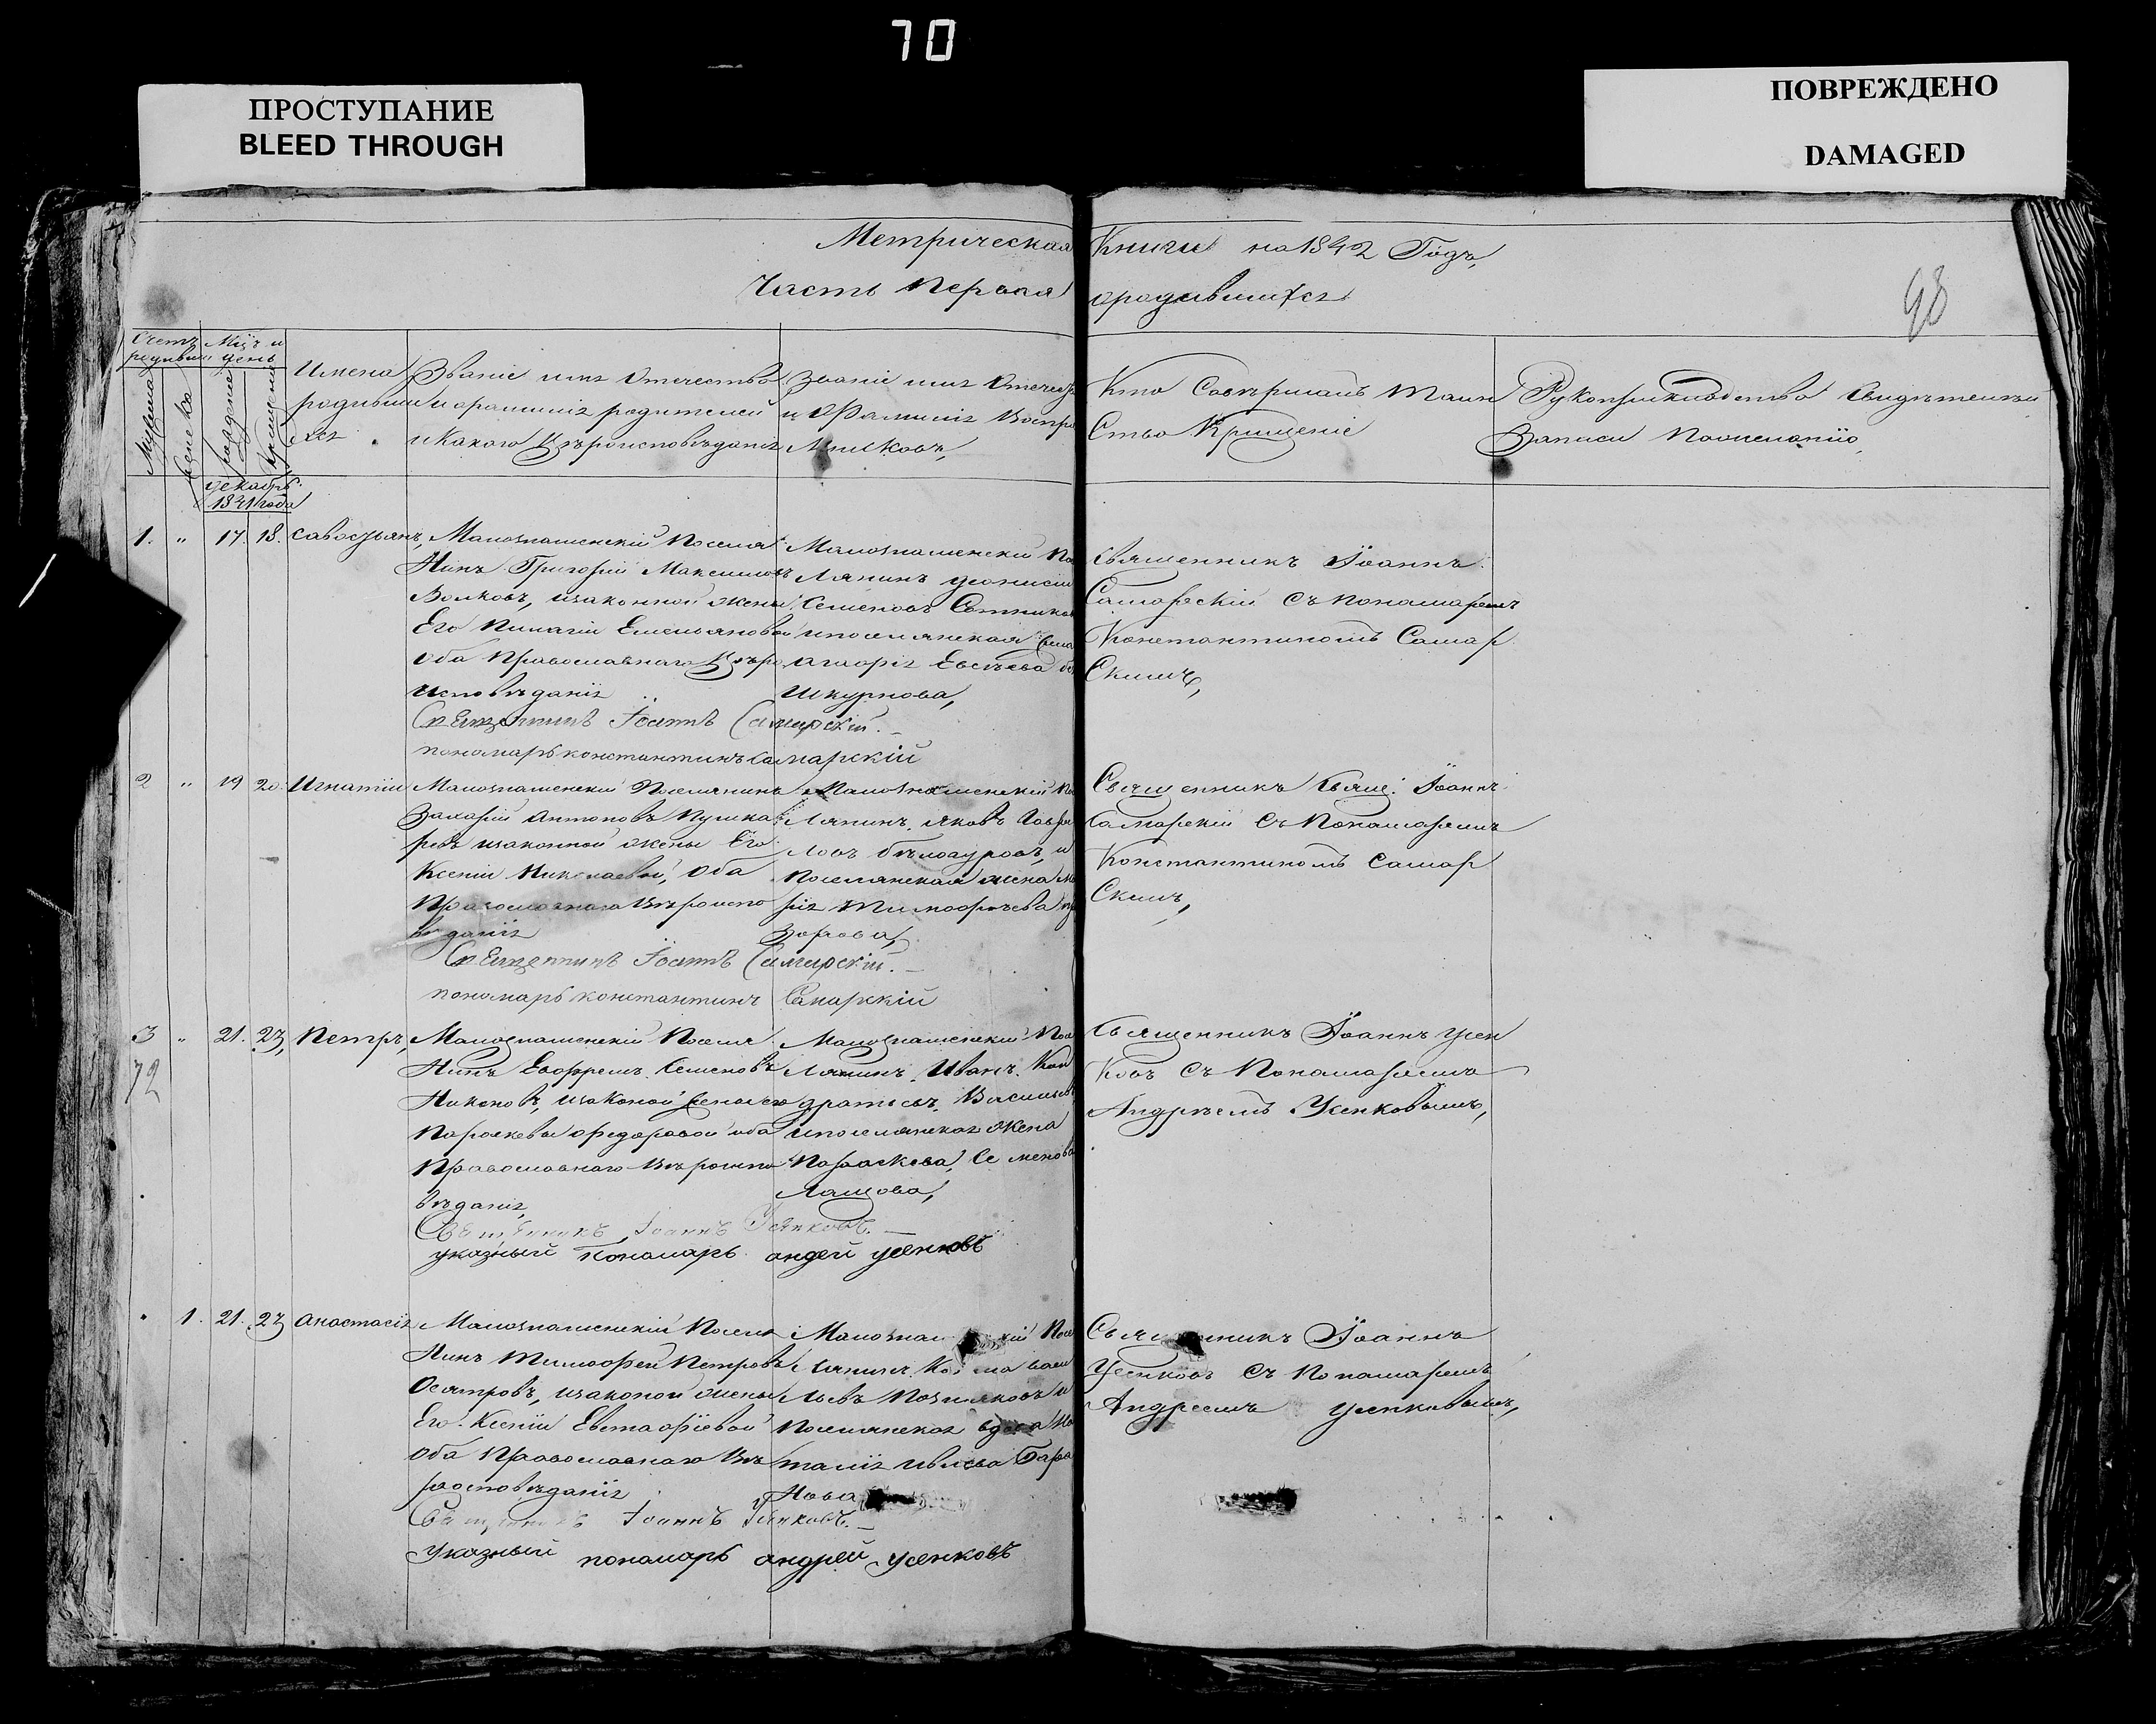 70
ПРОСТУПАНИЕ
BLEED THROUGH
ПОВРЕЖДЕНО
DAMAGED
Метрическая Книги на 1842 Годъ,
Часть первая о родившихся
98
Счетъ родивши
Мцъ и день
Мужеска
Женска
рождение
крещение
Имена родивши хся
Званіе имя Отечество
и фамилія родителей
и Какого Вѣроисповѣданія
Званіе имя Отечест
и Фамилія Воспри
Мниковъ,
Кто Совѣршалъ Таин
Ство Крищеніе
Рукоприкладство Свидѣтелей
Записи По желанію
декабрь
1841 года
1. " 17. 18. Савостьянъ,
Малознаменскій Поселя
Нинъ Григорій Максимовъ
Волковъ, изаконной жены
Его Пилагіи Емельяновой
Оба Православнаго Вѣро
Исповѣданія
Священникъ Іоаннъ Самарскій.
пономарь константинъ Самарскій
Малознаменскій По
Лянинъ Деонисій
Семеновъ Сотников
ипоселянская
Евсѣева
Шкурпова,
Священникъ Іоаннъ
Самарскій Съ Понамаремъ
Константиномъ Самар
Скимъ,
2 " 19 20. Игнатій
Малознаменскій Поселянинъ
Захарій Антоновъ Пушка
ревъ изаконной жены Его
Ксеніи Николаевой, Оба
Православнаго Вѣроиспо
вѣданія
Священникъ Іоаннъ Самарскій.
пономарь константинъ Самарскій
Малознаменскій По
Лянинъ Яковъ Гаври
Ловъ и
Поселянская жена Ма
рія Тимофѣева
Священникъ Іоаннъ
Самарскій Съ Понамаремъ
Константиномъ Самар
Скимъ,
3 " 21. 23, Петръ,
72
Малознаменскій Поселя
Нинъ Ефремъ Семеновъ
Никоновъ, изаконой жены его
Параскевы Федоровой оба
Православнаго Вѣроиспо
вѣданія,
Священникъ Іоаннъ Усенковъ.
указный пономарь андрей усенковъ
Малознаменскій Посе
Лянинъ Иванъ Кон
дратьевъ Васильевъ
ипоселянская жена
Параскева Семенова
Лащова,
Священникъ Іоаннъ Усен
Ковъ Съ Понамаремъ
Андрѣемъ Усенковымъ,
1. 21. 23 Анастасія
Малознаменскій Поселя
Нинъ Тимофей Петровъ
Осятровъ, изаконой жены
Его Ксеніи Евстафіевой
Оба Православнаго Вѣ
роисповѣданія
Священникъ Іоаннъ Усенковъ.
Указный пономарь андрей Усенковъ
Посе
Лянинъ Козма Васи
Льевъ Позняковъ и
Поселянская вдова На
талія Бара
Нова
Священникъ Іоаннъ
Усенковъ Съ Понамаремъ
Андреемъ Усенковымъ,